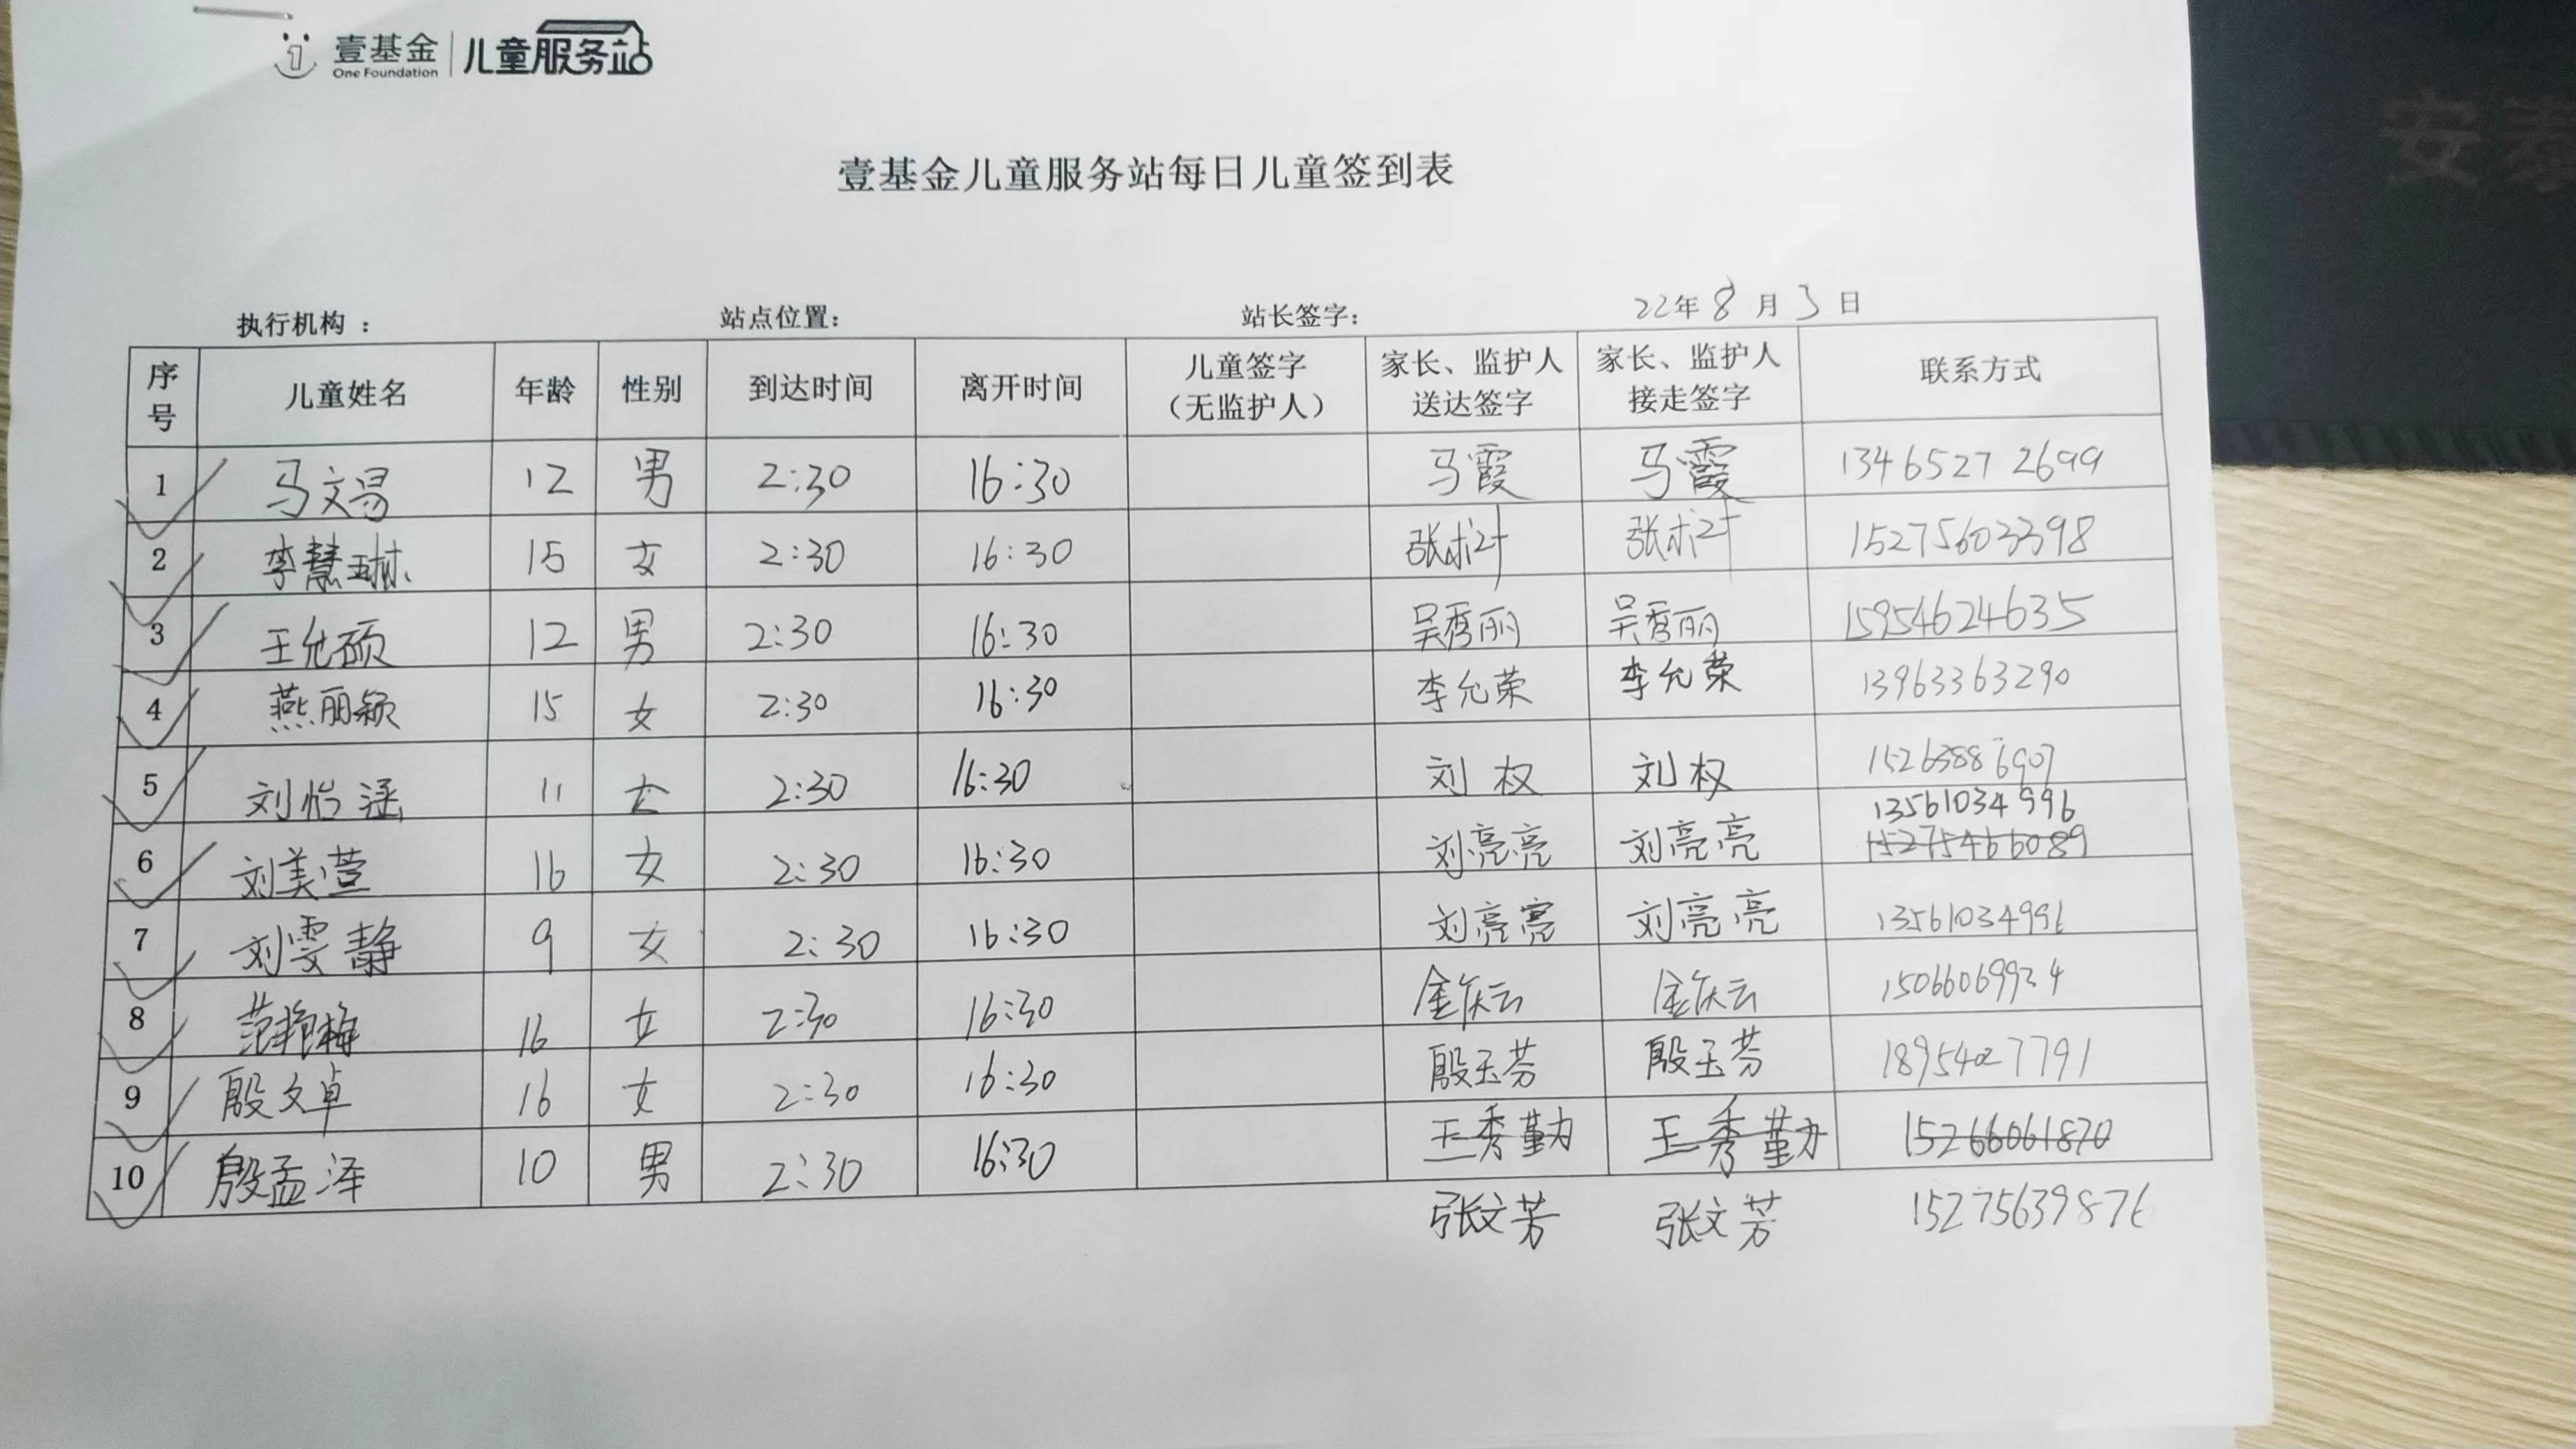 壹基金 儿童服务站
One Foundation
安泰
壹基金儿童服务站每日儿童签到表
执行机构： 站点位置： 站长签字： 22年8月3日
序号 儿童姓名 年龄 性别 到达时间 离开时间 儿童签字（无监护人） 家长、监护人送达签字 家长、监护人接走签字 联系方式
1 马文易 12 男 2:30 16:30 马霞 马霞 13465272699
2 李慧琳 15 女 2:30 16:30 15275603398
3 王允硕 12 男 2:30 16:30 吴秀丽 吴秀丽 15954624635
4 燕丽颖 15 女 2:30 16:30 李允荣 李允荣 13963363290
5 刘怡涵 11 女 2:30 16:30 刘权 刘权 15263886907
13561034996
6 刘美萱 16 女 2:30 16:30 刘亮亮 刘亮亮 15275466089
7 刘雯静 9 女 2:30 16:30 刘亮亮 刘亮亮 13561034996
8 范艳梅 16 女 2:30 16:30 金庆云 金庆云 15066069934
9 殷文卓 16 女 2:30 16:30 殷玉芬 殷玉芬 18954027791
10 殷孟泽 10 男 2:30 16:30 王秀勤 王秀勤 15266061870
张文芳 张文芳 15275639876